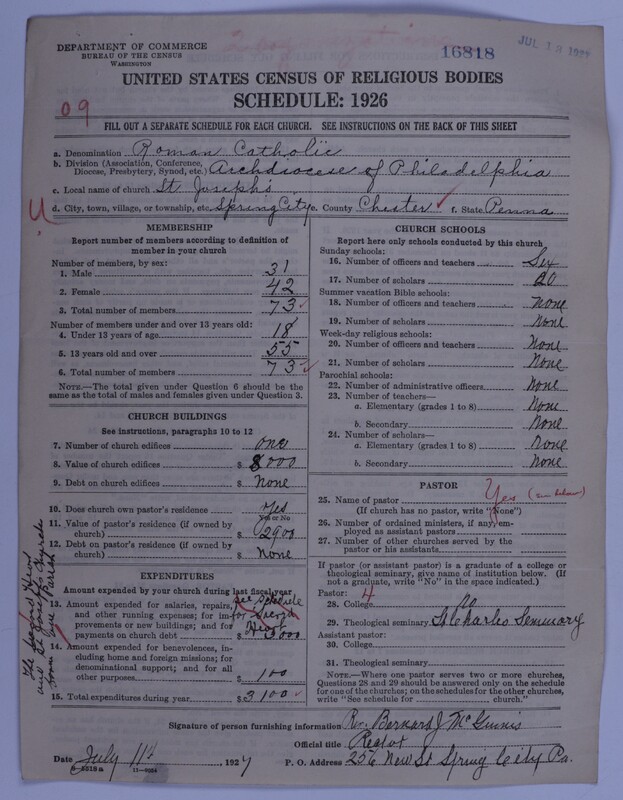 DEPARTMENT OF COMMERCE
BUREAU OF THE CENSUS
WASHINGTON
16818
JUL 13 1927
UNITED STATES CENSUS OF RELIGIOUS BODIES
SCHEDULE: 1926
09
FILL OUT A SEPARATE SCHEDULE FOR EACH CHURCH. SEE INSTRUCTIONS ON THE BACK OF THIS SHEET
a. Denomination Roman Catholic
b. Division (Association, Conference, Diocese, Presbytery, Synod, etc.) Archdiocese of Philadelphia
c. Local name of church St Joseph's
U
d. City, town, village, or township, etc. Spring City e. County Chester f. State Penna
MEMBERSHIP
Report number of members according to definition of
member in your church
Number of members, by sex:
1. Male 31
2. Female 42
3. Total number of members 73
Number of members under and over 13 years old:
4. Under 13 years of age 18
5. 13 years old and over 55
6. Total number of members 73
NOTE.—The total given under Question 6 should be
same as the total of males and females given under Question 3.
CHURCH BUILDINGS
See instructions, paragraphs 10 to 12
7. Number of church edifices one
8. Value of church edifices $ 8000
9. Debt on church edifices $ None
10. Does church own pastor's residence Yes
Yes or No
11. Value of pastor's residence (if owned by
church) $ 2900
12. Debt on pastor's residence (if owned by
church) $ None
EXPENDITURES
Amount expended by your church during last fiscal year
13. Amount expended for salaries, repairs,
and other running expenses; for im-
provements or new buildings; and for
payments on church debt $ 3000
See Schedule
for Sacred
Heart
14. Amount expended for benevolences,
including home and foreign missions; for
denominational support; and for all
other purposes $ 100
15. Total expenditures during year $ 3100
The Sacred Heart
and St Joseph's Church
form one Parish
CHURCH SCHOOLS
Report here only schools conducted by this church
Sunday schools:
16. Number of officers and teachers Six
17. Number of scholars 20
Summer vacation Bible schools:
18. Number of officers and teachers None
19. Number of scholars None
Week-day religious schools:
20. Number of officers and teachers None
21. Number of scholars None
Parochial schools:
22. Number of administrative officers None
23. Number of teachers—
a. Elementary (grades 1 to 8) None
b. Secondary None
24. Number of scholars—
a. Elementary (grades 1 to 8) None
b. Secondary None
PASTOR
25. Name of pastor Yes (see below)
(If church has no pastor, write "None")
26. Number of ordained ministers, if any, em-
ployed as assistant pastors
27. Number of other churches served by the
pastor or his assistants
If pastor (or assistant pastor) is a graduate of a college or
theological seminary, give name of institution below. (If
not a graduate, write "No" in the space indicated.)
Pastor: 4
28. College
29. Theological seminary St Charles Seminary
Assistant pastor:
30. College
31. Theological seminary
NOTE.—Where one pastor serves two or more churches,
Questions 28 and 29 should be answered only on the schedule
for one of the churches; on the schedules for the other churches,
write "See schedule for church."
Signature of person furnishing information Rev. Bernard J McGinnis
Official title Rector
Date July 11th, 1927 P. O. Address 256 New St Spring City Pa.
8-5318a 11-9084